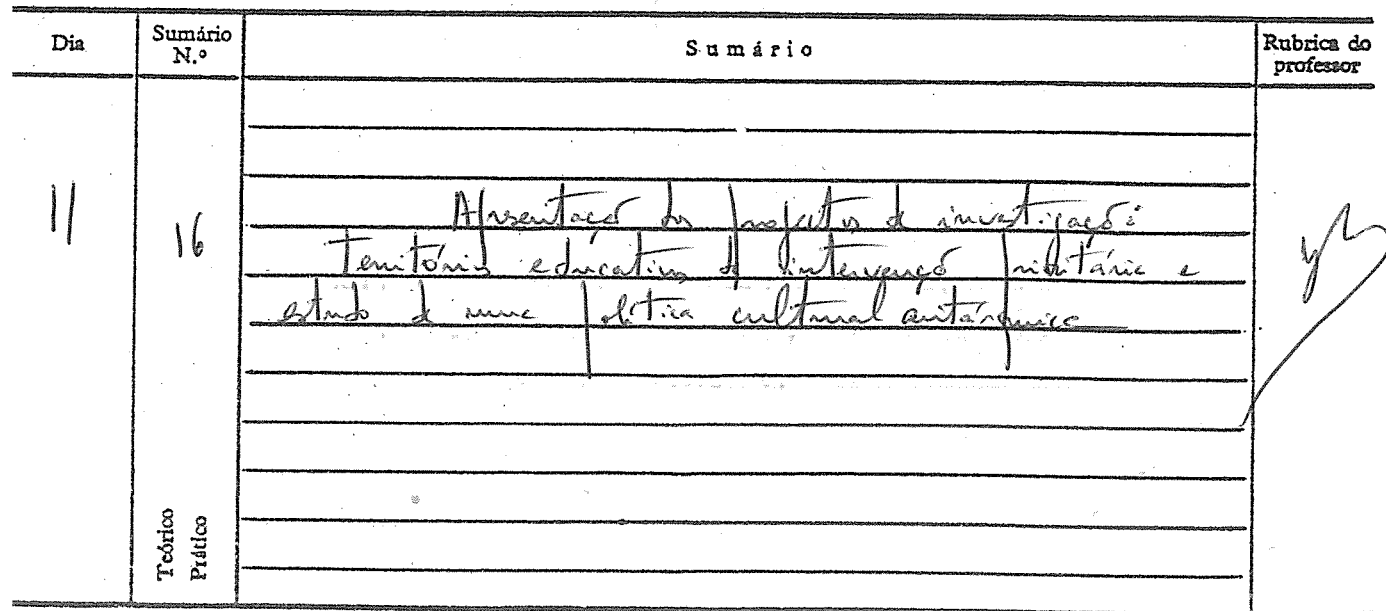 Dia
Sumário N.º
Sumário
Rubrica do professor
11
16
Apresentação dos projectos de investigação:
Territórios educativos de intervenção prioritária e
estudo de uma política cultural autárquica
Teórico
Prático